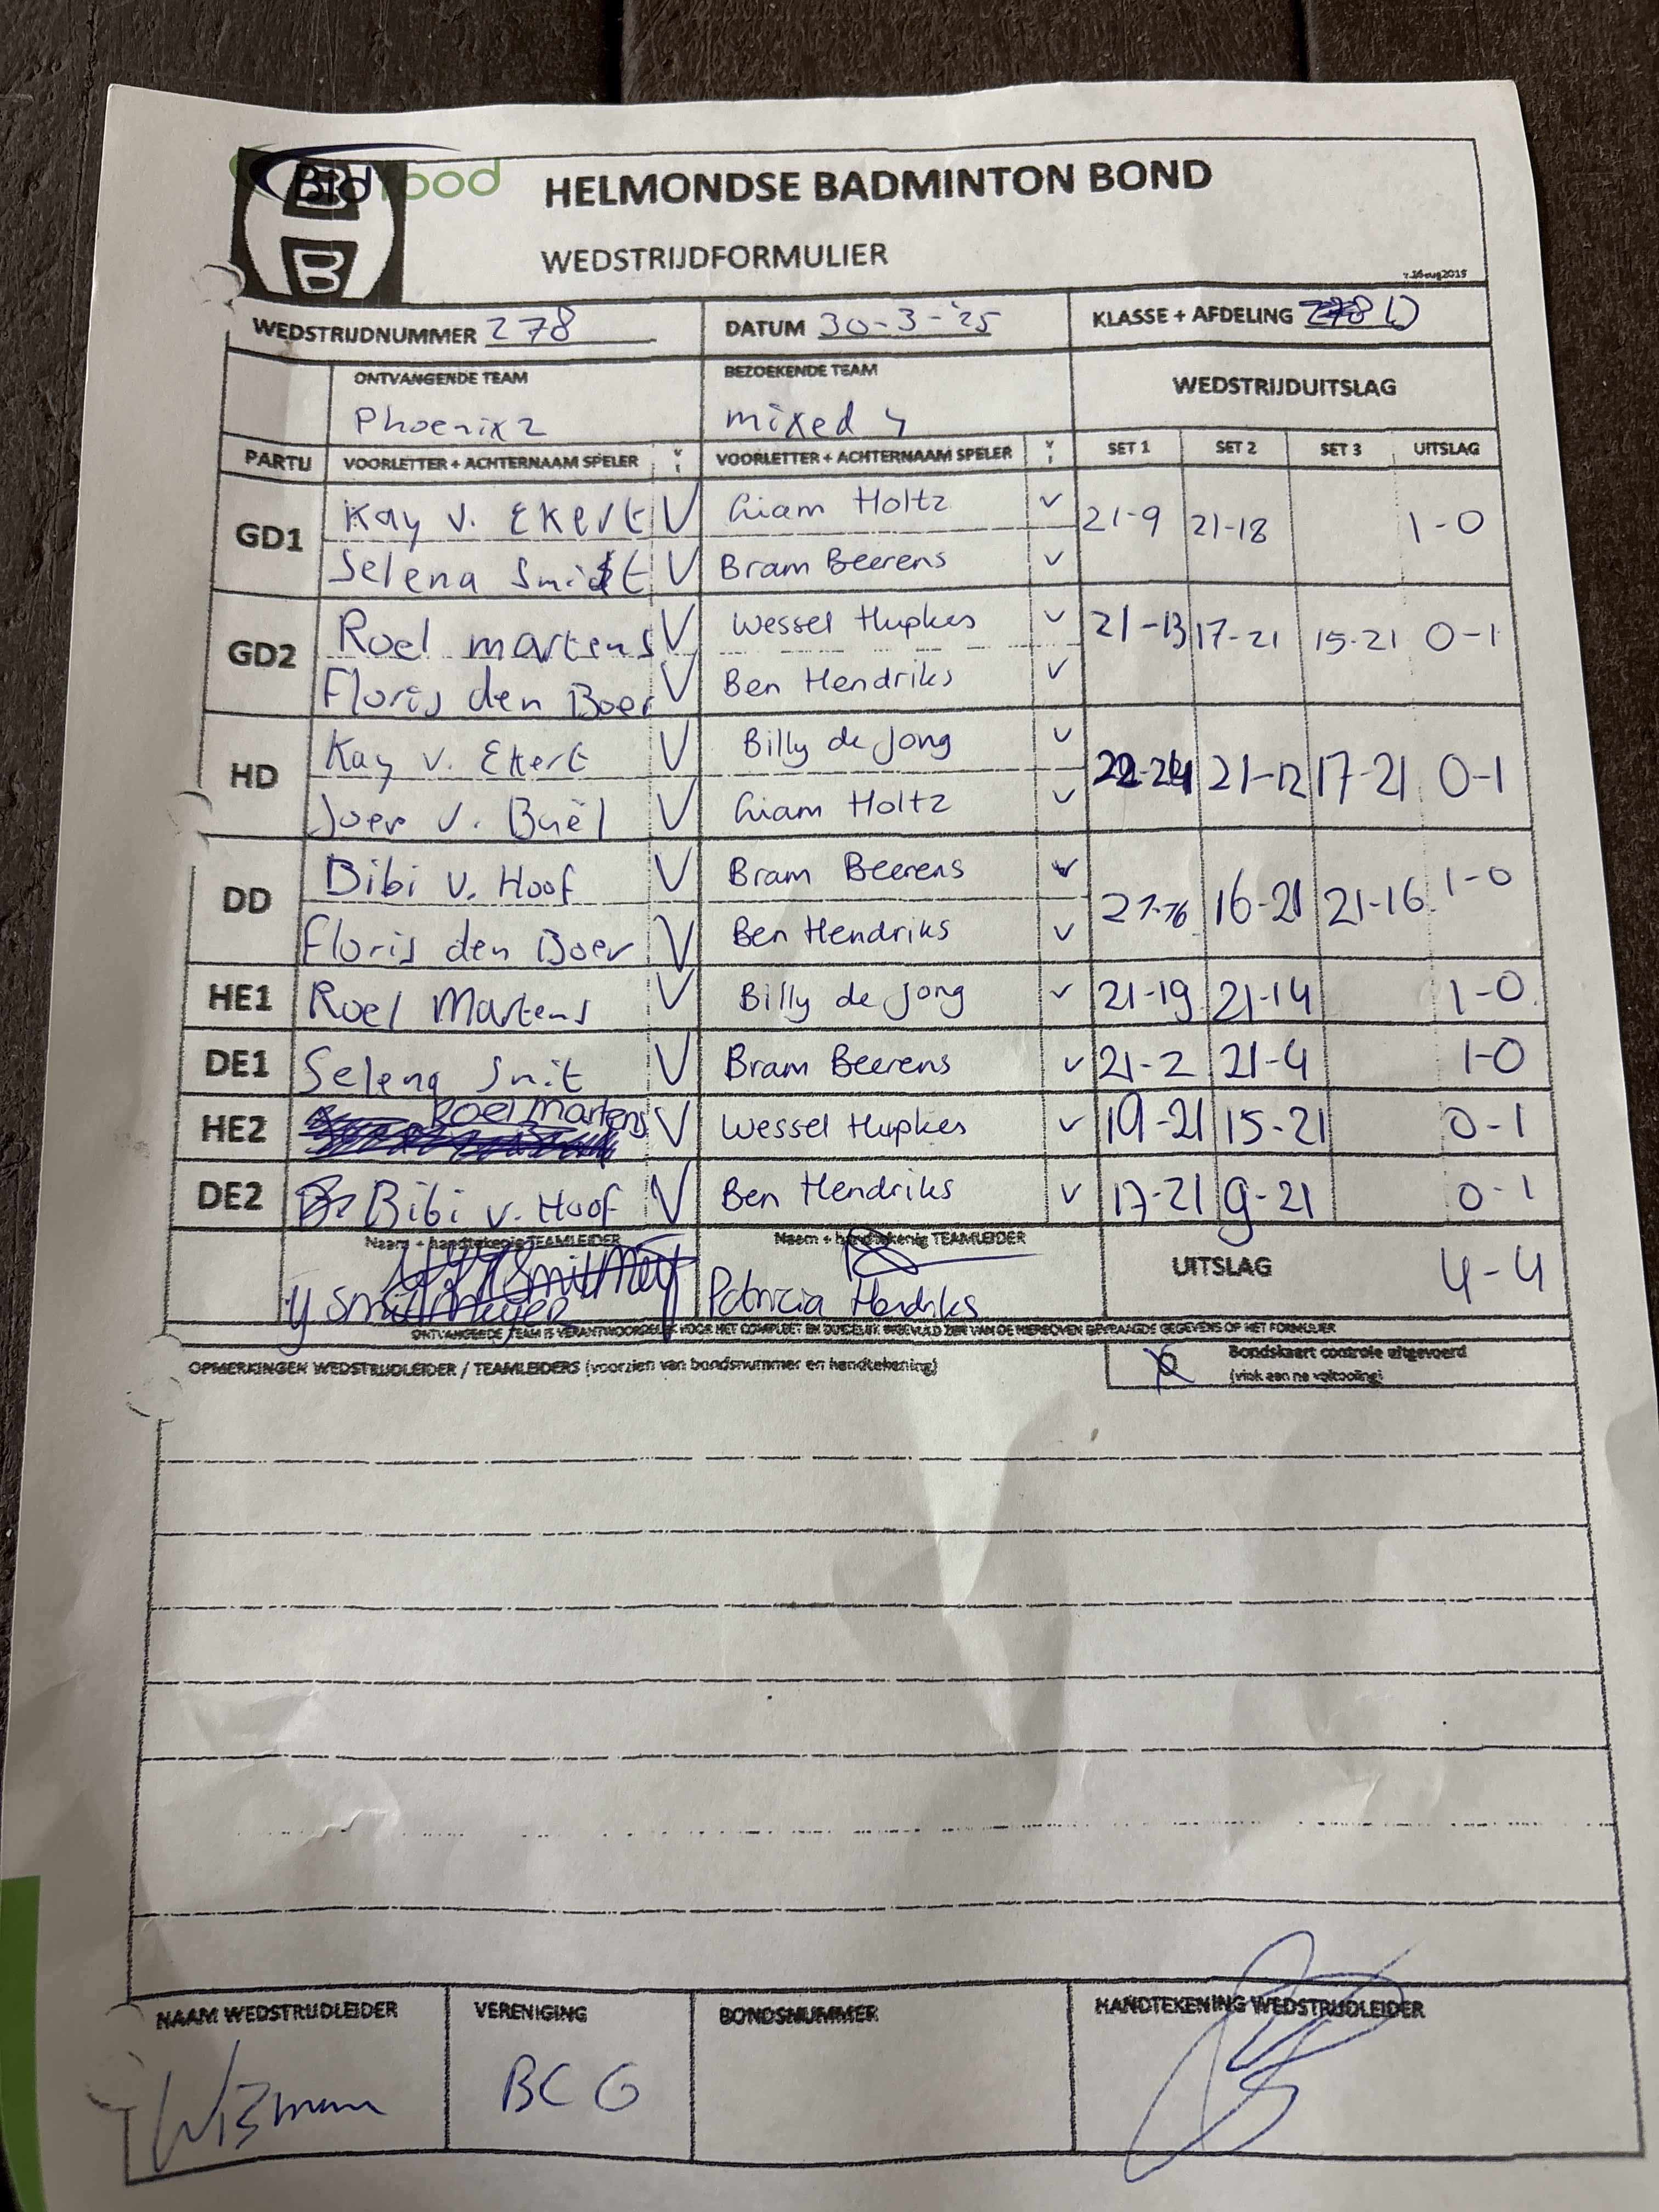 Bidfood
HELMONDSE BADMINTON BOND
WEDSTRIJDFORMULIER
WEDSTRIJDNUMMER 278 DATUM 30-3-'25 KLASSE + AFDELING D
ONTVANGENDE TEAM BEZOEKENDE TEAM WEDSTRIJDUITSLAG
Phoenix 2 mixed 4
PARTIJ VOORLETTER + ACHTERNAAM SPELER VOORLETTER + ACHTERNAAM SPELER SET 1 SET 2 SET 3 UITSLAG
GD1 Kay v. Ekert V Giam Holtz v 21-9 21-18 1-0
Selena Smit V Bram Beerens v
GD2 Roel martens V Wessel Hupkes v 21-13 17-21 15-21 0-1
Floris den Boer V Ben Hendriks v
HD Kay v. Ekert V Billy de Jong v 22-24 21-12 17-21 0-1
Joep v. Buël V Giam Holtz v
DD Bibi v. Hoof V Bram Beerens v 21-16 16-21 21-16 1-0
Floris den Boer V Ben Hendriks v
HE1 Roel Martens V Billy de Jong v 21-19 21-14 1-0
DE1 Selena Smit V Bram Beerens v 21-2 21-4 1-0
HE2 Roel Martens V Wessel Hupkes v 19-21 15-21 0-1
DE2 Bibi v. Hoof V Ben Hendriks v 17-21 9-21 0-1
Naam + handtekenig TEAMLEIDER Naam + handtekenig TEAMLEIDER UITSLAG 4-4
Y Smitmeyer Patricia Hendriks
ONTVANGENDE TEAM IS VERANTWOORDELIJK VOOR HET COMPLEET EN DUIDELIJK INGEVULD ZIJN VAN DE HIERBOVEN GEVRAAGDE GEGEVENS OP HET FORMULIER
OPMERKINGEN WEDSTRIJDLEIDER / TEAMLEIDERS (voorzien van bondsnummer en handtekening) Bondskaart controle uitgevoerd
(vink aan na voltooiing)
NAAM WEDSTRIJDLEIDER VERENIGING BONDSNUMMER HANDTEKENING WEDSTRIJDLEIDER
BCG